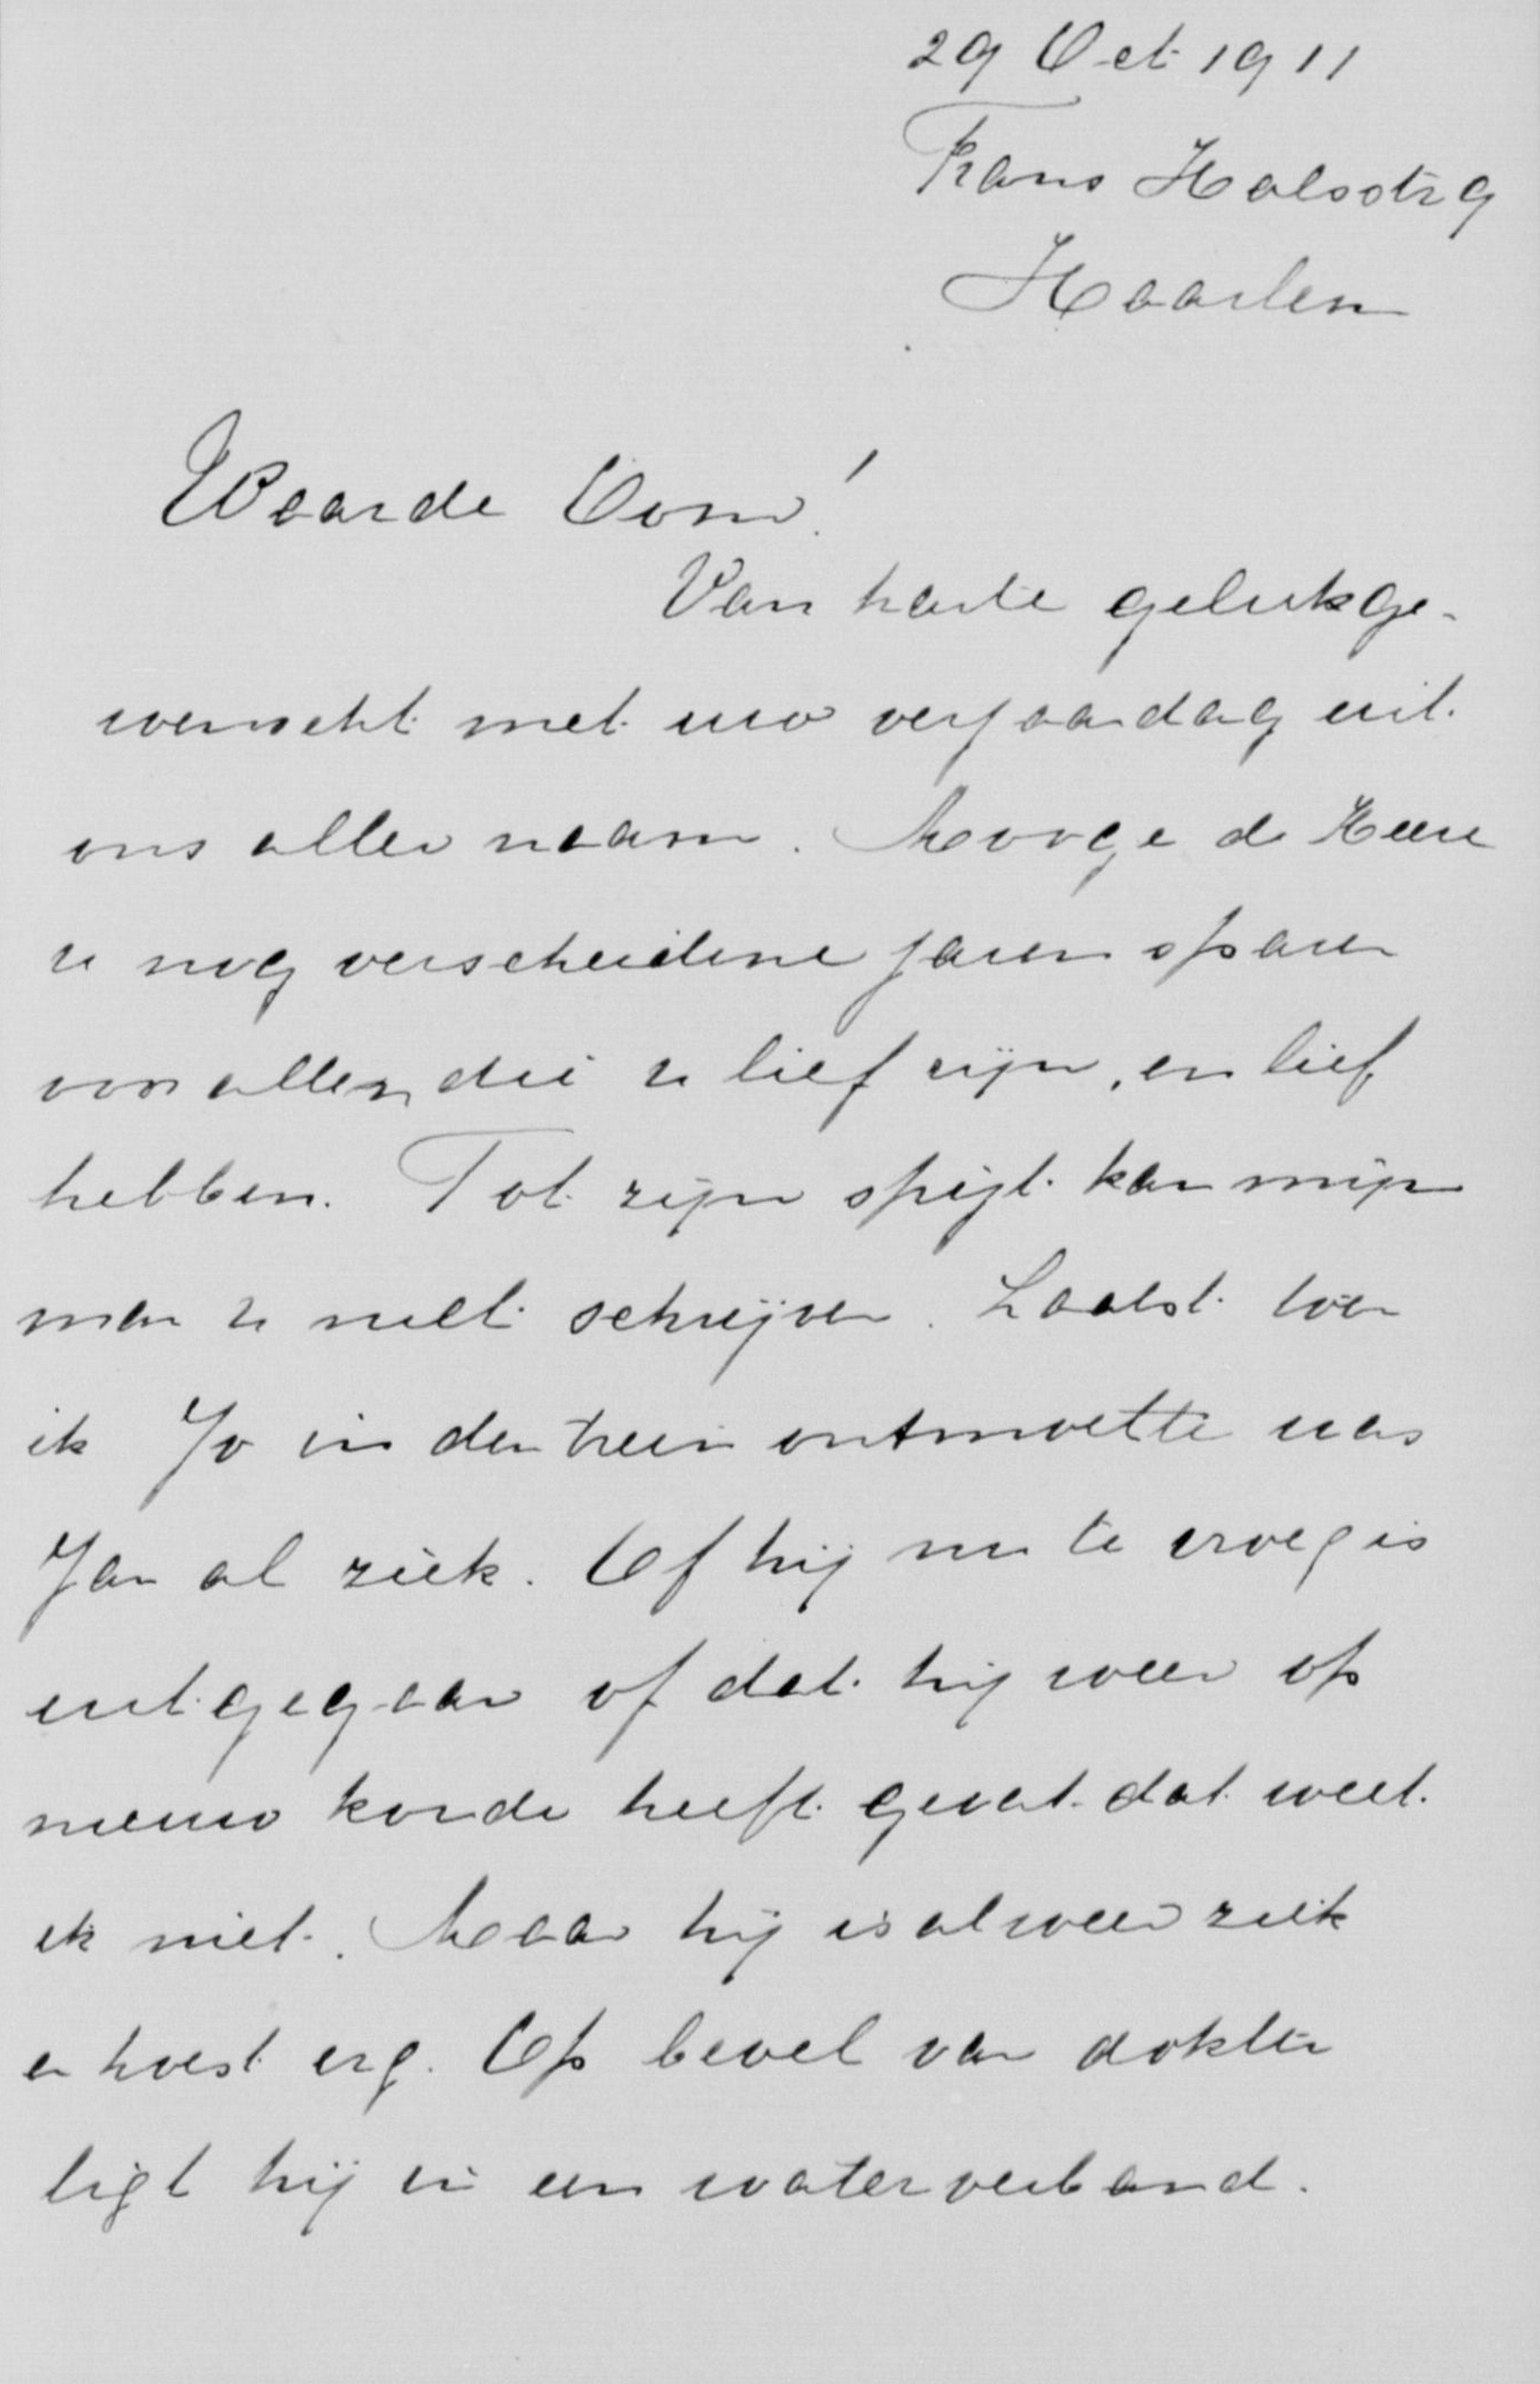 29 Oct 1911
Frans Halsstr 9
Haarlem
Waarde Oom!
Van harte gelukge-
wenscht met uw verjaardag uit
ons aller naam. Mooge de Heere
u nog verscheidene jaren sparen
voor allen die u lief zijn, en lief
hebben. Tot zijn spijt kan mijn
man u niet schrijven. Laatst toen
ik Jo in den trein ontmoette was
Jan al ziek. Of hij nu te vroeg is
uitgegaan of dat hij weer op
nieuw koude heeft gevat dat weet
ik niet. Maar hij is alweer ziek
en hoest erg. Op bevel van dokter
ligt hij in een waterverband.